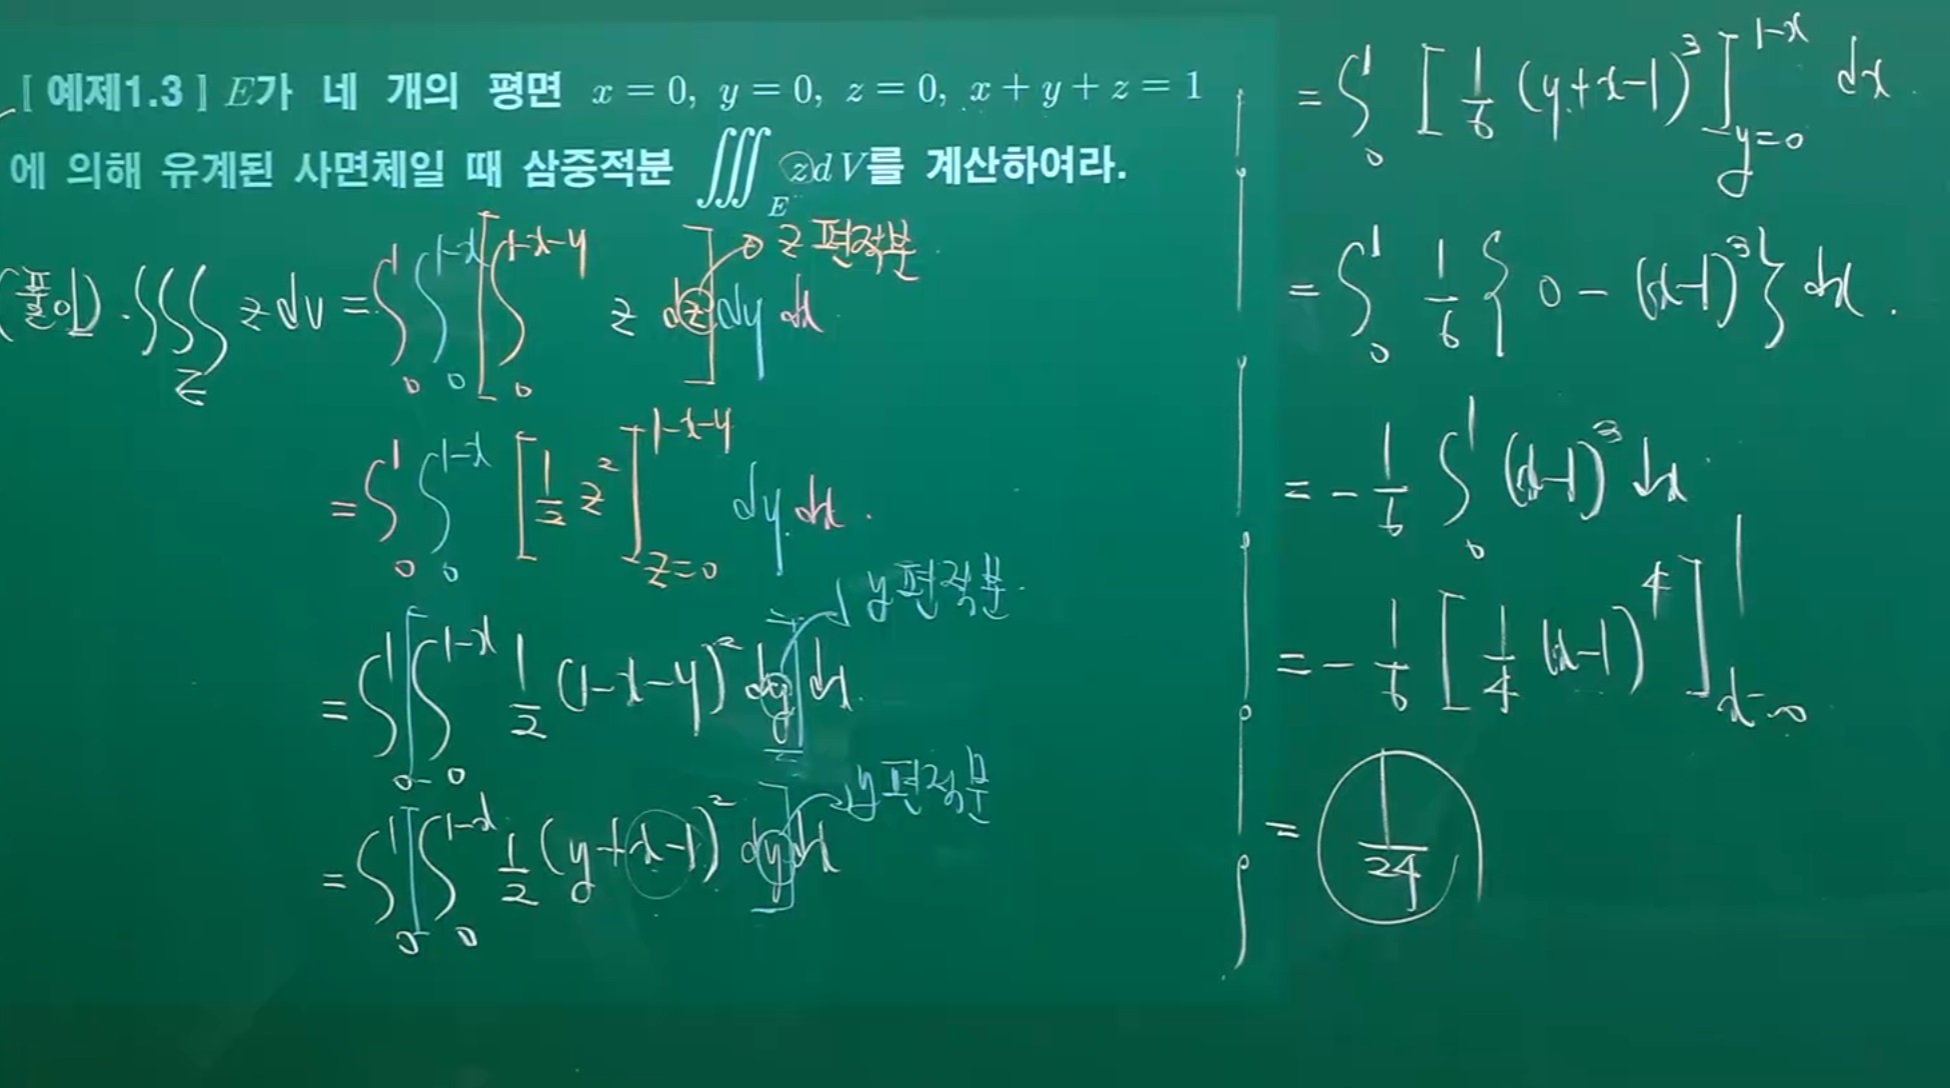 [ 예제1.3 ] E가 네 개의 평면 x = 0, y = 0, z = 0, x + y + z = 1
에 의해 유계된 사면체일 때 삼중적분 ∭_E z dV를 계산하여라.
(풀이). ∭_E z dV = ∫_0^1 ∫_0^{1-x} [ ∫_0^{1-x-y} z dz ] dy dx → z 편적분
= ∫_0^1 ∫_0^{1-x} [ 1/2 z² ]_{z=0}^{1-x-y} dy dx.
= ∫_0^1 [ ∫_0^{1-x} 1/2 (1-x-y)² dy ] dx → y 편적분
= ∫_0^1 [ ∫_0^{1-x} 1/2 (y+x-1)² dy ] dx → y 편적분
= ∫_0^1 [ 1/6 (y+x-1)³ ]_{y=0}^{1-x} dx.
= ∫_0^1 1/6 { 0 - (x-1)³ } dx.
= - 1/6 ∫_0^1 (x-1)³ dx
= - 1/6 [ 1/4 (x-1)⁴ ]_{x=0}^1
= 1/24